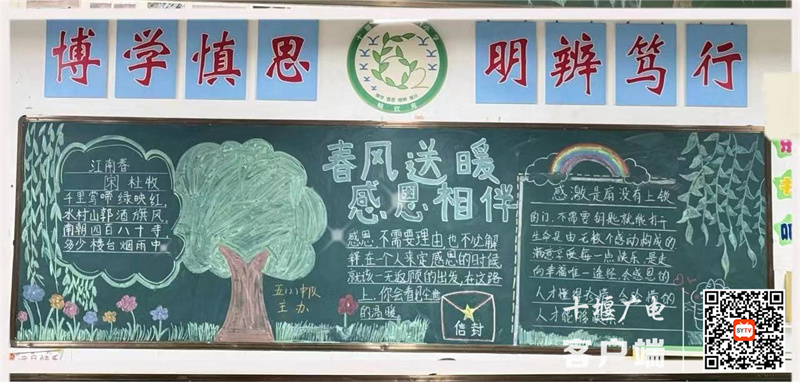 博学慎思
明辨笃行
江南春
宋 杜牧
千里莺啼绿映红,
水村山郭酒旗风,
南朝四百八十寺,
多少楼台烟雨中.
五(2)中队
主办
春风送暖
感恩相伴
感恩,不需要理由,也不必解
释,在一个人决定感恩的时候
就该一无反顾的出发,在这路
上,你会看到金黄
的高暖
信封
感激是扇没有上锁
的门,不需要钥匙就能打开
生命是由无数个感动构成的
每一点快乐,是走
向幸福的一连径,会感恩的
人才懂得
人才能够
十堰广电
客户端
SYTV